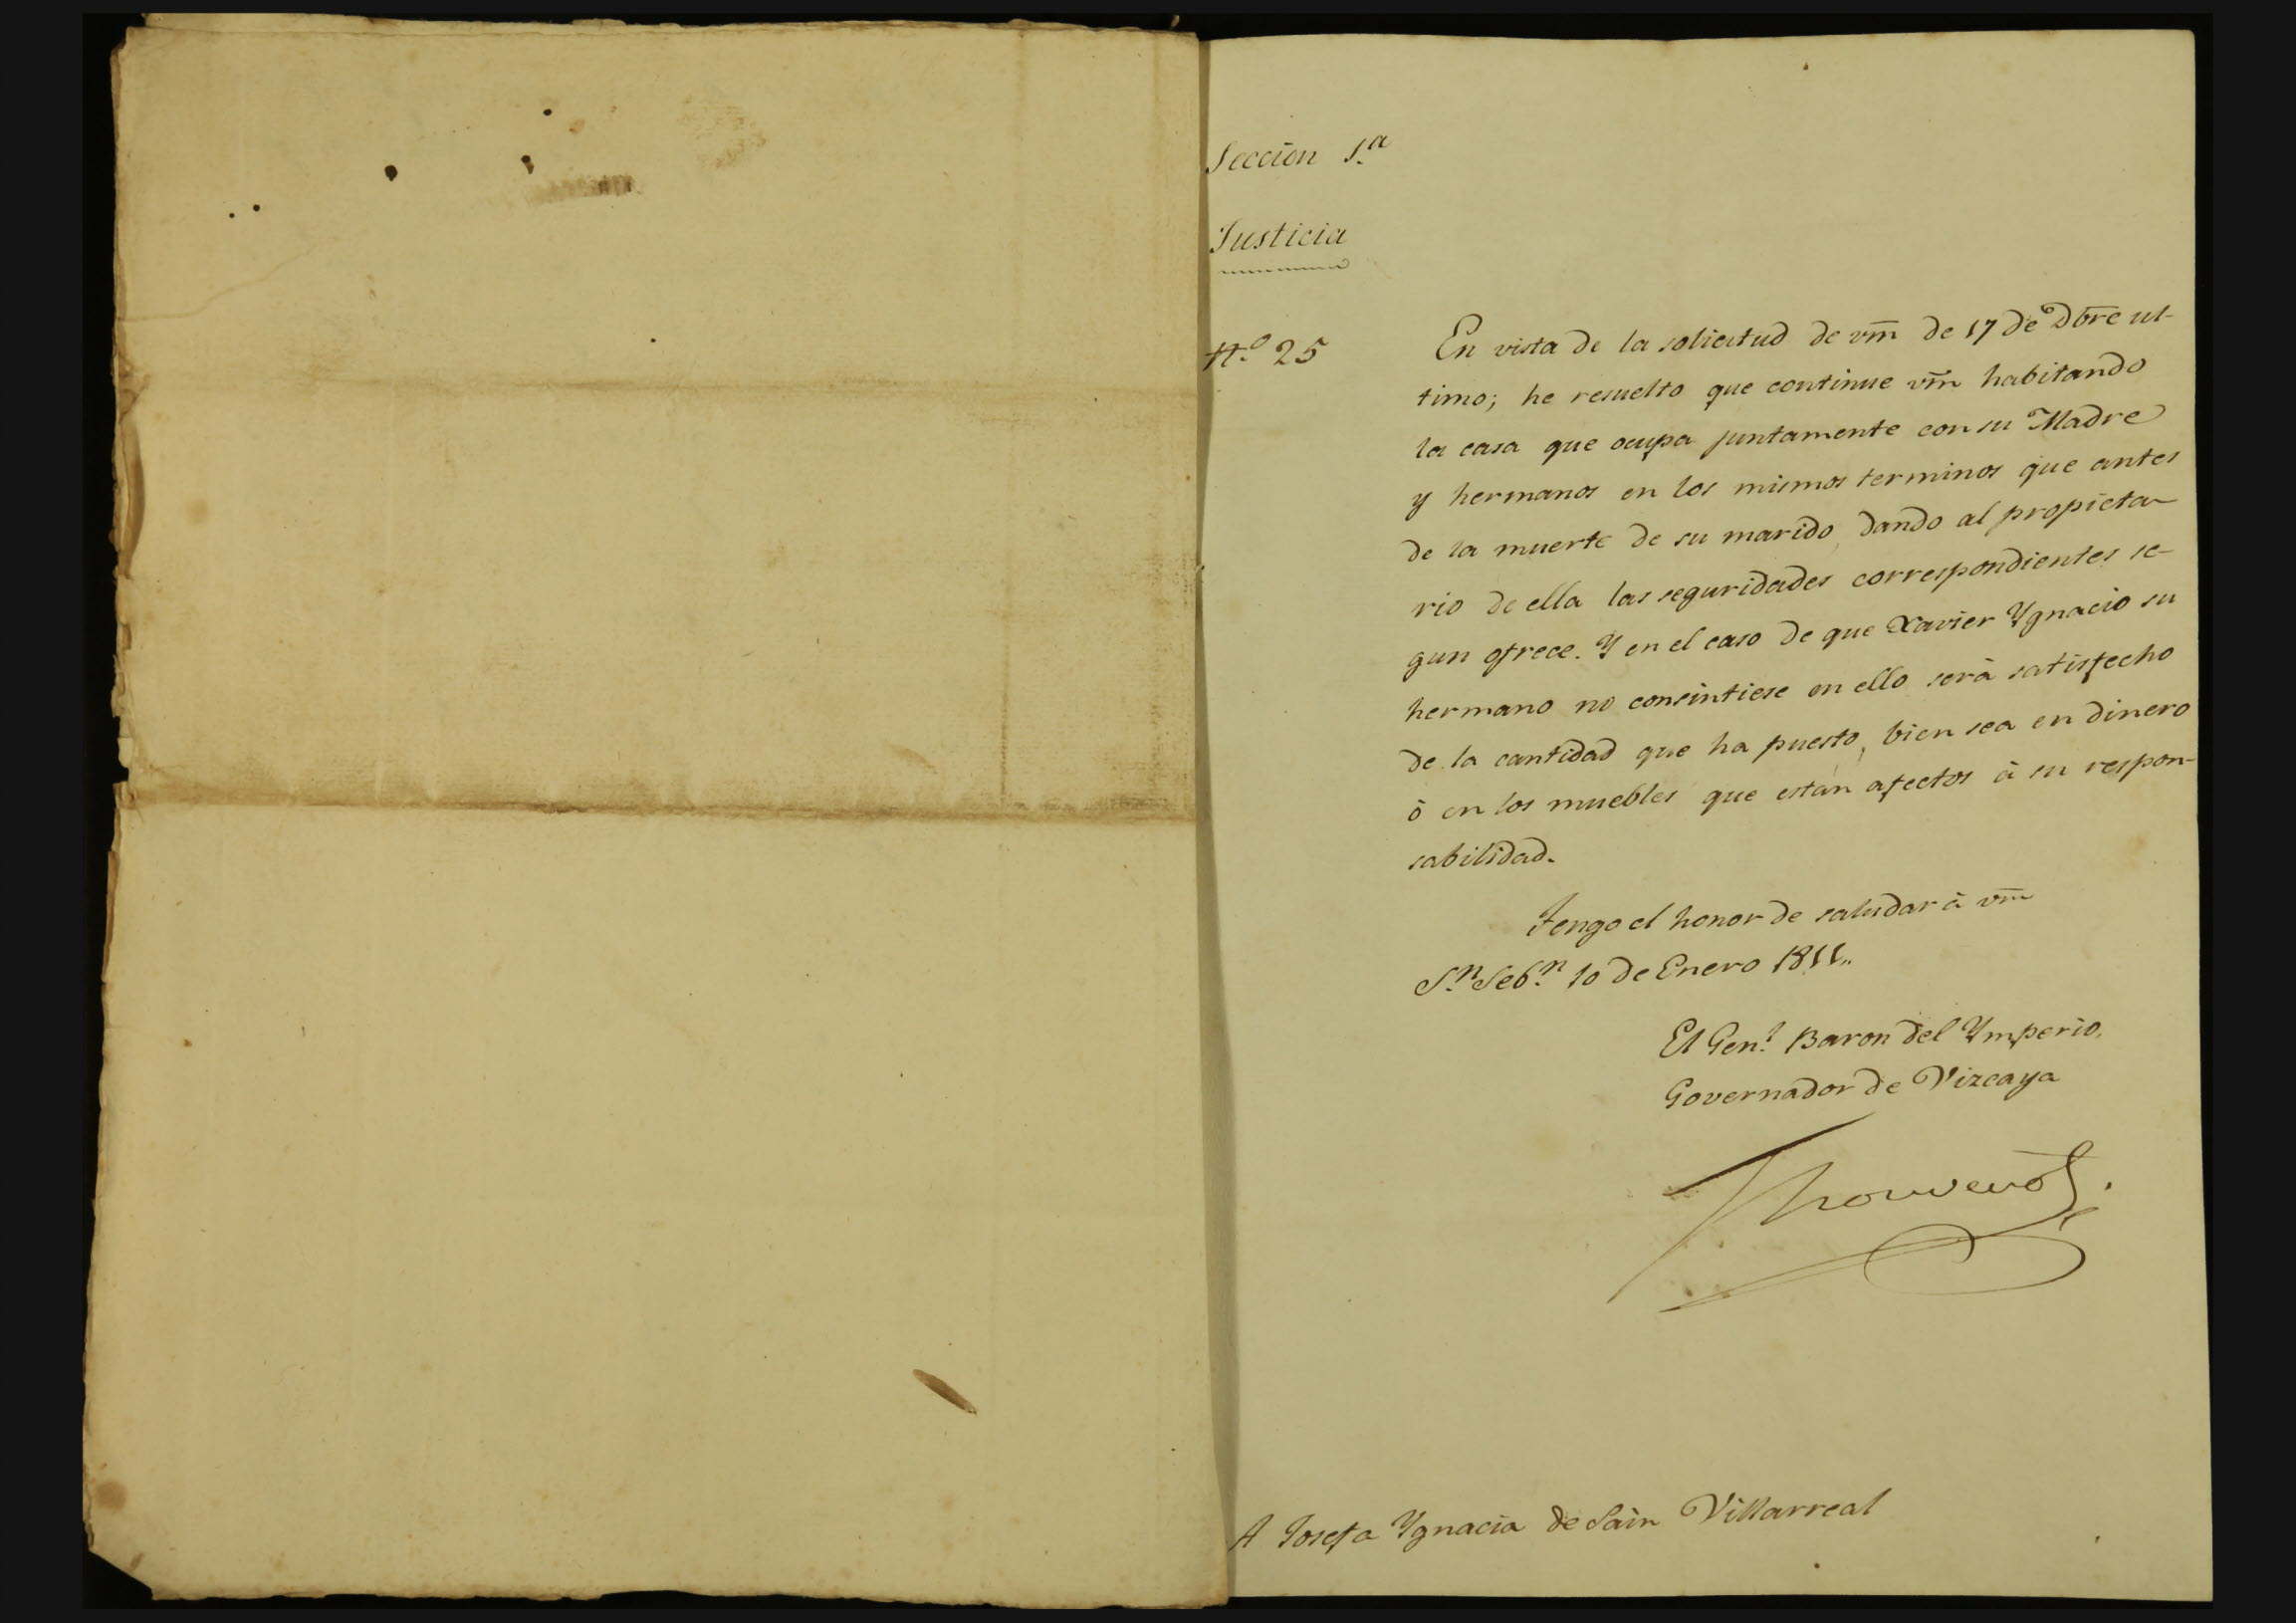 Seccion 1.ª
Justicia
N.º 25
En vista de la solicitud de vm̃ de 17 de Dbrē ul-
timo; he resuelto que continue vm̃ habitando
la casa que ocupa juntamente con su Madre
y hermanos en los mismos terminos que antes
de la muerte de su marido, dando al propieta-
rio de ella las seguridades correspondientes se-
gun ofrece. Y en el caso de que Xavier Ygnacio su
hermano no consintiese en ello serà satisfecho
de la cantidad que ha puesto, bien sea en dinero
ò en los muebles que estan afectos à su respon-
sabilidad.
Tengo el honor de saludar à vm̃
S.ⁿ Seb.ⁿ 10 de Enero 1811„
El Gen.l Baron del Ymperio,
Governador de Vizcaya
Thouvenot.
A Josefa Ygnacia de Sain Villarreal